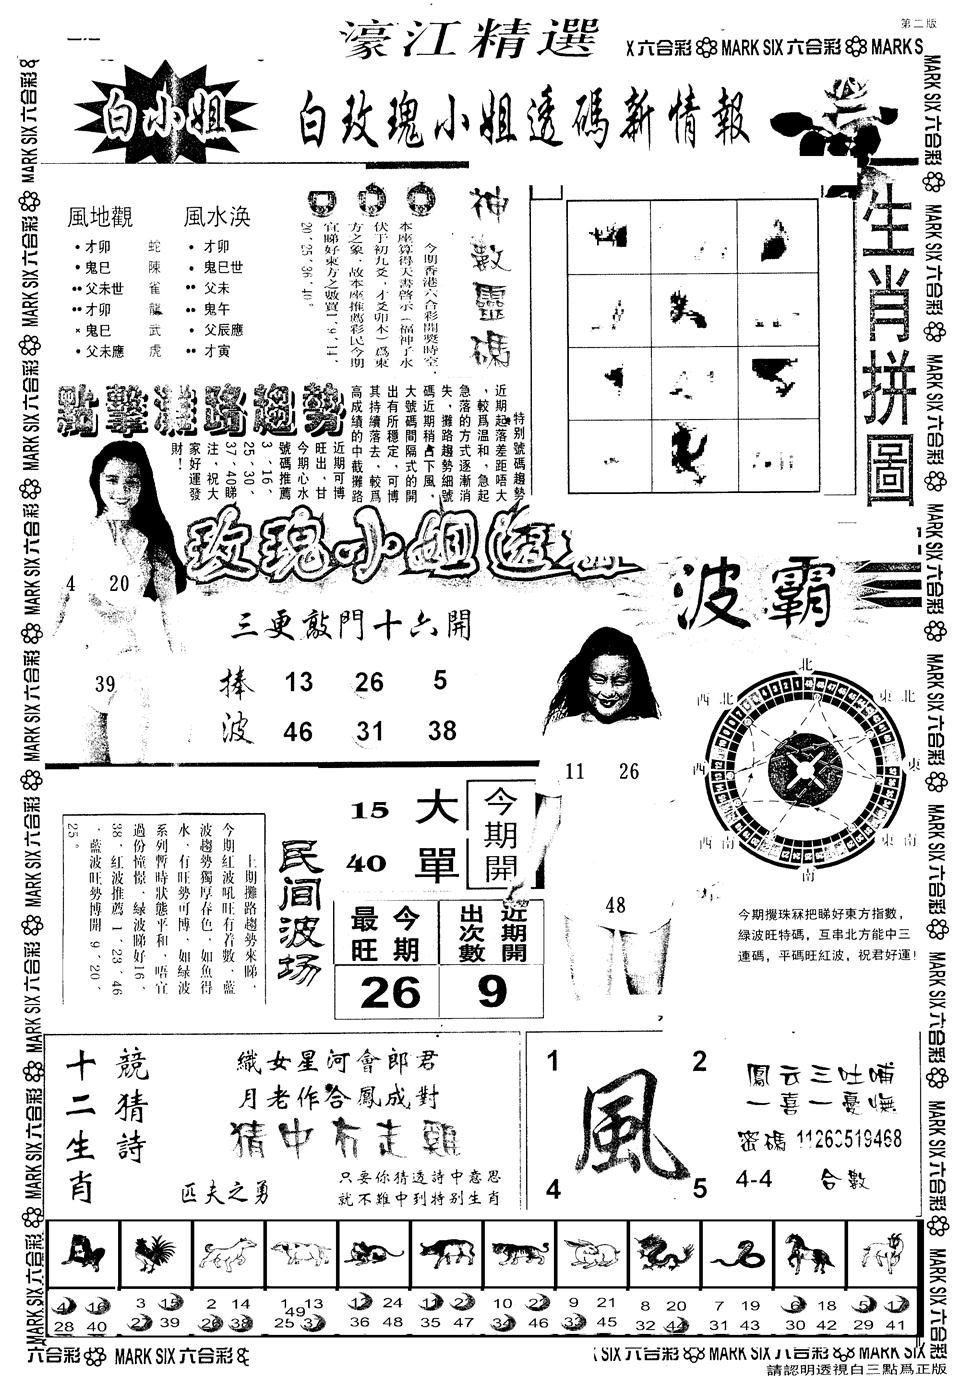 第二版
濠江精選
X六合彩 MARK SIX 六合彩 MARK S
白小姐
白玫瑰小姐透碼新情報
生肖拼圖
風地觀
風水渙
•才卯 蛇 • 才卯
•鬼巳 陳 • 鬼巳世
••父未世 雀 •• 父未
••才卯 龍 •• 鬼午
×鬼巳 武 • 父辰應
•父未應 虎 •• 才寅
神數靈碼
今期香港六合彩開獎時空，
本座算得天書啓示（福神子水
伏于初九爻，才爻卯木）爲東
方之象，故本座推薦彩民今期
宜睇好東方之數買1、9、14、
20、25、36、40。
點擊灘路趨勢
特别號碼趨勢
近期起落差距唔大
，較爲温和、急起
急落的方式逐漸消
失、攤路趨勢細號
碼近期稍占下風，
大號碼間隔式的開
出有所穩定，可博
其持續落去、較爲
高成績的中截攤路
近期可博
旺出、甘
今期心水
號碼推薦
3、16、
25、30、
37、40睇
注，祝大
家好運發
財！
玫瑰小姐透
4 20
39
三更敲門十六開
捧波
13 26 5
46 31 38
波霸
11 26
48
北
東北
東
東南
南
西南
西
西北
今期攪珠冧把睇好東方指數，
綠波旺特碼，互串北方能中三
連碼，平碼旺紅波，祝君好運！
上期攤路趨勢來睇，
今期紅波吼旺有着數、藍
波趨勢獨厚春色、如魚得
水、有旺勢可博、如緑波
系列暫時狀態平和、唔宜
過份憧憬、緑波睇好16、
38、紅波推薦1、23、46
、藍波旺勢博開9、20、
25。
民间波场
15 大
40 單
今期開
今期最旺
近期開出次數
26
9
十二生肖
競猜詩
織女星河會郎君
月老作合鳳成對
猜中有走雞
匹夫之勇
只要你猜透詩中意思
就不難中到特别生肖
1 2
風
4 5
鳳云三吐哺
一喜一憂憮
密碼 11263519468
4-4 合數
4 16 3 15 2 14 1 13 12 24 11 23 10 22 9 21 8 20 7 19 6 18 5 17
49
28 40 27 39 26 38 25 37 36 48 35 47 34 46 33 45 32 44 31 43 30 42 29 41
六合彩 MARK SIX 六合彩
SIX 六合彩 MARK SIX 六合彩
請認明透視白三點爲正版